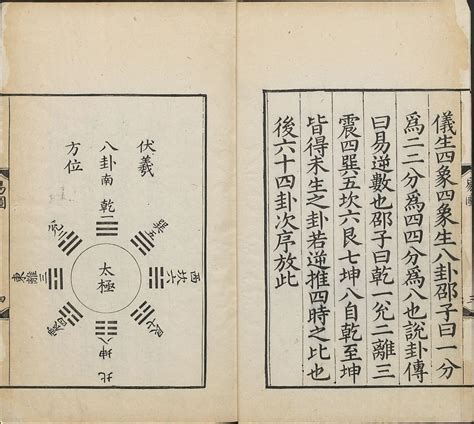 儀生四象四象生八卦邵子曰一分
爲二二分爲四四分爲八也說卦傳
曰易逆數也邵子曰乾一兌二離三
震四巽五坎六艮七坤八自乾至坤
皆得未生之卦若逆推四時之比也
後六十四卦次序放此
伏羲
八卦
方位
南
乾一
巽五
兌二
西
坎六
太極
離三
東
艮七
震四
坤八
北
易圖
四